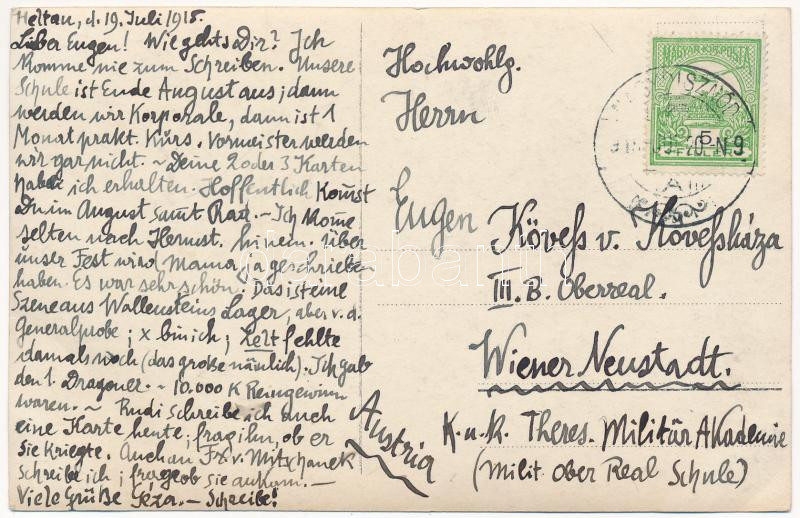 Heltau, d. 19. Juli 1915.
Lieber Eugen! Wie gehts Dir? Ich
komme nie zum Schreiben. Unsere
Schule ist Ende August aus; dann
werden wir Korporale, dann ist 1
Monat prakt. Kurs. Vormeister werden
wir gar nicht. ~ Deine 2 oder 3 Karten
habe ich erhalten. Hoffentlich komst
Du im August samt Rad. – Ich kome
selten nach Hermst. hinein. Über
unser Fest wird Mama ja geschrieben
haben. Es war sehr schön. Das ist eine
Szene aus Wallensteins Lager, aber v. d.
Generalprobe; x bin ich; Zelt fehlte
damals noch (das große nämlich). Ich gab
den 1. Dragoner. ~ 10.000 K Reingewinn
waren. ~ Rudi schreibe ich auch
eine Karte heute; frag ihn, ob er
sie kriegte. Auch an Fr. v. Mitxanek
schreibe ich; frage ob sie ankam. –
Viele Grüße Géza. – Schreibe!
MAGYAR KIR. POSTA
5
Hochwohlg.
Herrn
Eugen Kövess v. Kövessháza
III. B. Oberreal.
Wiener Neustadt.
Austria
K. u. K. Theres. Militär Akademie
(Milit. Ober Real Schule)
darabanth